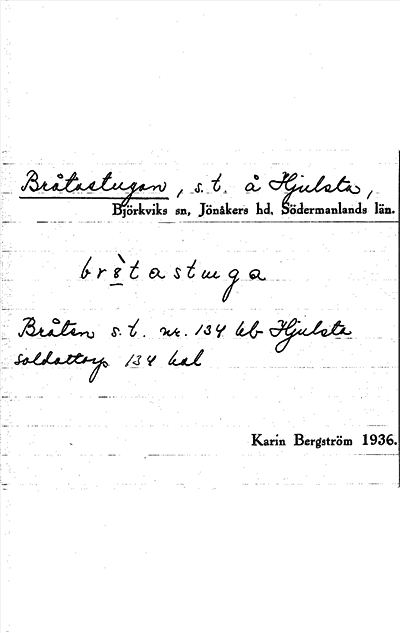 Bråtastugan, s.t. å Hjulsta,
Björkviks sn, Jönåkers hd, Södermanlands län.
bratastuga
Bråten s.t. nr. 134 hb Hjulsta
soldattorp 134 kal
Karin Bergström 1936.